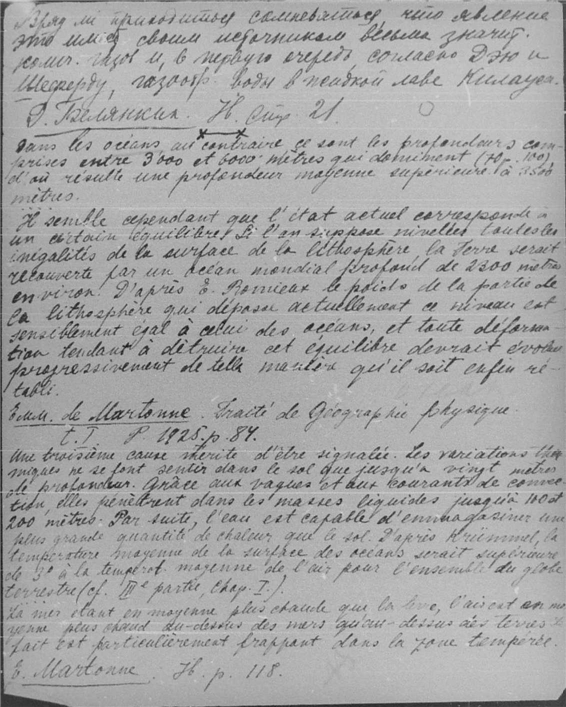 Вряд ли приходится сомневаться, что явление
это имеет своим источником весьма значит.
колич. газов и, в первую очередь, согласно Дэю и
Шеферду, газообр. воды в жидкой лаве Килауэа.
Д. Белянкин. Н. Стр. 21.
Dans les océans au contraire ce sont les profondeurs com-
prises entre 3000 et 6000 mètres qui dominent (70 p. 100),
d'où résulte une profondeur moyenne supérieure à 3500
mètres.
Il semble cependant que l'état actuel corresponde à
un certain équilibre. Si l'on suppose nivelées toutes les
inégalités de la surface de la lithosphère, la terre serait
recouverte par un océan mondial profond de 2300 mètres
environ. D'après E. Romieux le poids de la partie de
la lithosphère qui dépasse actuellement ce niveau est
sensiblement égal à celui des océans, et toute déforma-
tion tendant à détruire cet équilibre devrait évoluer
progressivement de telle manière qu'il soit enfin ré-
tabli.
Emm. de Martonne. Traité de Géographie physique.
t. I P. 1925. p. 84.
Une troisième cause mérite d'être signalée. Les variations ther-
miques ne se font sentir dans le sol que jusqu'à vingt mètres
de profondeur. Grâce aux vagues et aux courants de convec-
tion, elles pénètrent dans les masses liquides jusqu'à 100 et
200 mètres. Par suite, l'eau est capable d'emmagasiner une
plus grande quantité de chaleur que le sol. D'après Krümmel, la
température moyenne de la surface des océans serait supérieure
de 3° à la températ. moyenne de l'air pour l'ensemble du globe
terrestre (cf. IIIe partie, Chap. I.)
La mer étant en moyenne plus chaude que la terre, l'air est en mo-
yenne plus chaud au-dessus des mers qu'au-dessus des terres. Le
fait est particulièrement frappant dans la zone tempérée.
E. Martonne. Н. p. 118.